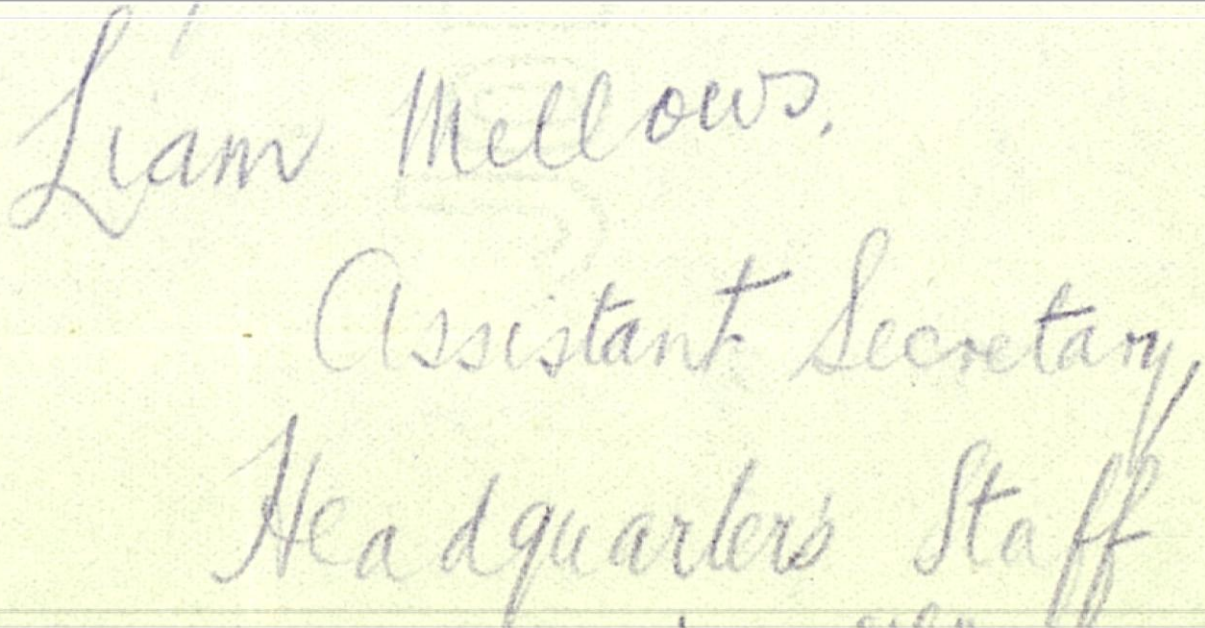 Liam Mellows.
Assistant Secretary,
Headquarters Staff